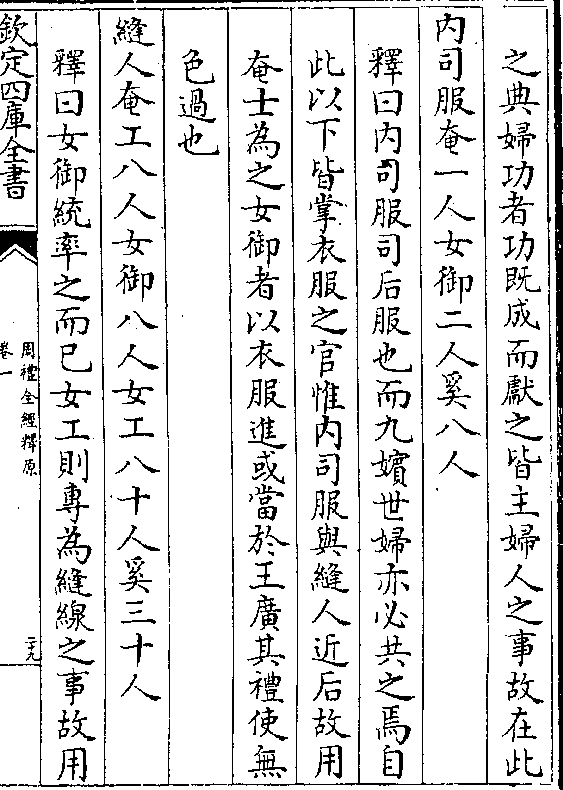 之典婦功者功既成而獻之皆主婦人之事故在此
内司服奄一人女御二人奚八人
釋曰内司服司后服也而九嬪世婦亦必共之焉自
此以下皆掌衣服之官惟内司服與縫人近后故用
奄士為之女御者以衣服進或當於王廣其禮使無
色過也
縫人奄工八人女御八人女工八十人奚三十人
釋曰女御統率之而已女工則專為縫線之事故用
欽定四庫全書
周禮全經釋原
卷一
二九